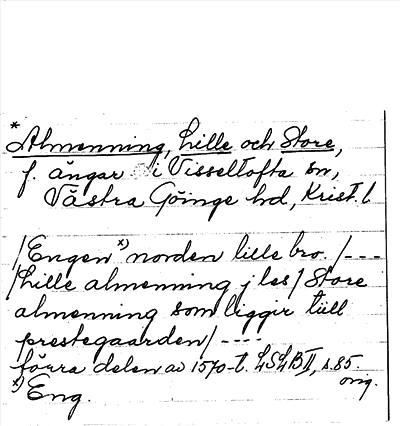 *Almenning, Lille och Store,
f. ängar i Visseltofta sn,
Västra Göinge hd, Krist. l
/Engen x) norden lille bro. /---
/Lille almenning j les/ Store
almenning som liggir tiill
prestegaarden/----
förra delen av 1570-t. LSLBII, s. 85.
orig.
x) Eng.